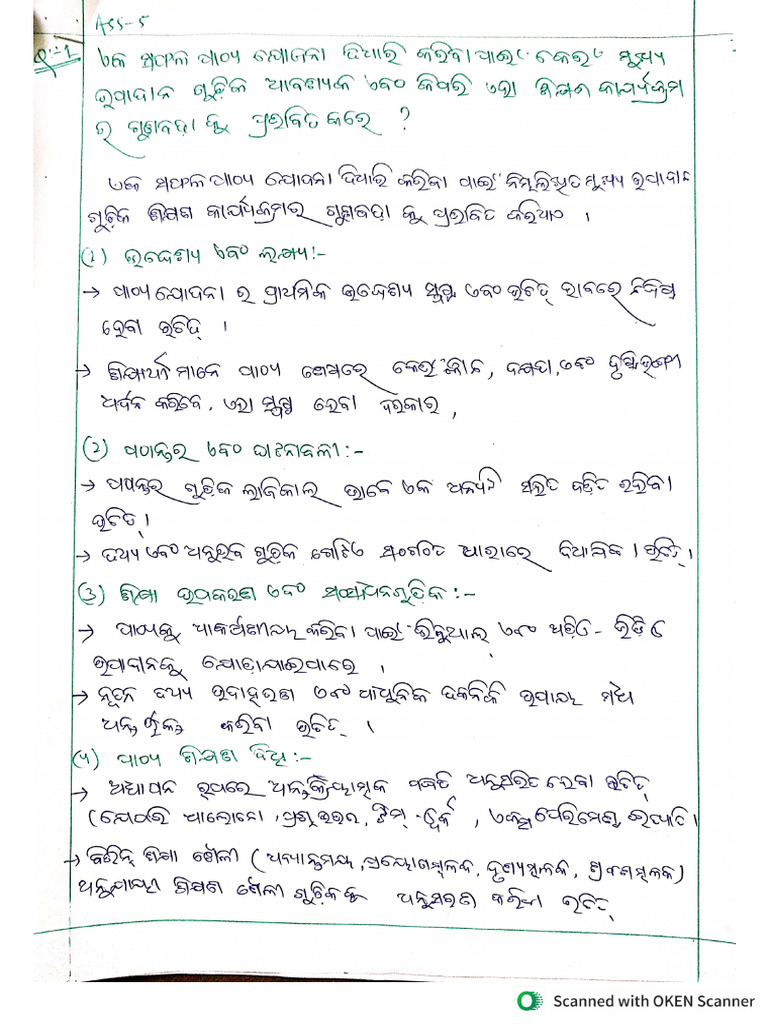 ASS-5
Q:-1 ଏକ ସଫଳ ପାଠ୍ୟ ଯୋଜନା ତିଆରି କରିବା ପାଇଁ କେଉଁ ମୁଖ୍ୟ
ଉପାଦାନ ଗୁଡ଼ିକ ଆବଶ୍ୟକ ଏବଂ କିପରି ଏହା ଶିକ୍ଷଣ କାର୍ଯ୍ୟକ୍ରମ
ର ଗୁଣବତ୍ତା କୁ ପ୍ରଭାବିତ କରେ ?
ଏକ ସଫଳ ପାଠ୍ୟ ଯୋଜନା ତିଆରି କରିବା ପାଇଁ ନିମ୍ନଲିଖିତ ମୁଖ୍ୟ ଉପାଦାନ
ଗୁଡ଼ିକ ଶିକ୍ଷଣ କାର୍ଯ୍ୟକ୍ରମର ଗୁଣବତ୍ତା କୁ ପ୍ରଭାବିତ କରିଥାଏ ।
(1) ଉଦ୍ଦେଶ୍ୟ ଏବଂ ଲକ୍ଷ୍ୟ:-
→ ପାଠ୍ୟ ଯୋଜନା ର ପ୍ରାଥମିକ ଉଦ୍ଦେଶ୍ୟ ସ୍ପଷ୍ଟ ଏବଂ ଉଚିତ୍ ଭାବରେ ନିର୍ଦ୍ଦିଷ୍ଟ
ହେବା ଉଚିତ୍ ।
→ ଶିକ୍ଷାର୍ଥୀ ମାନେ ପାଠ୍ୟ ଶେଷରେ କେଉଁ ଜ୍ଞାନ, ଦକ୍ଷତା, ଏବଂ ଦୃଷ୍ଟିଭଙ୍ଗୀ
ଅର୍ଜନ କରିବେ, ଏହା ସ୍ପଷ୍ଟ ହେବା ଦରକାର,
(2) ପଠାନ୍ତର ଏବଂ ଘଟନାବଳୀ:-
→ ଗୁଡ଼ିକ ଲଜିକାଲ ଭାବେ ଏକ ଅନ୍ୟ ସହିତ ଜଡ଼ିତ ରହିବା
ଉଚିତ୍।
→ ତଥ୍ୟ ଏବଂ ଅନୁଭବ ଗୁଡ଼ିକ ଗୋଟିଏ ସଂଗଠିତ ଆଧାରେ ଦିଆଯିବା ଉଚିତ୍।
(3) ଶିକ୍ଷା ଉପକରଣ ଏବଂ ସଂସାଧନଗୁଡ଼ିକ:-
→ ପାଠ୍ୟକୁ ଆକର୍ଷଣୀୟ କରିବା ପାଇଁ ଭିଜୁଆଲ୍ ଏବଂ ଅଡ଼ିଓ-ଭିଡ଼ିଓ
ଉପାଦାନକୁ ଯୋଡ଼ାଯାଇପାରେ ।
→ ନୂତନ ତଥ୍ୟ ଉଦାହରଣ ଏବଂ ଆଧୁନିକ ଟେକନିକ ଉପାୟ ମଧ୍ୟ
ଅନ୍ତର୍ଭୁକ୍ତ କରିବା ଉଚିତ୍ ।
(୪) ପାଠ୍ୟ ଶିକ୍ଷଣ ବିଧି:-
→ ଅଧ୍ୟାପନ ରୂପରେ ଅନ୍ତଃକ୍ରିୟାତ୍ମକ ପଦ୍ଧତି ଅନୁସରିତ ହେବା ଉଚିତ୍
(ଯେପରି ଆଲୋଚନା, ପ୍ରଶ୍ନ ଉତ୍ତର, ଟିମ୍-ୱର୍କ, ଏକ୍ସପେରିମେଣ୍ଟ ଇତ୍ୟାଦି।
→ ବିଭିନ୍ନ ଶିକ୍ଷା ଶୈଳୀ (ପ୍ରୟୋଗମୂଳକ, ଦୃଶ୍ୟମୂଳକ, ଶ୍ରବଣମୂଳକ)
ଅନୁଯାୟୀ ଶିକ୍ଷଣ ଶୈଳୀ ଗୁଡ଼ିକକୁ ଅନୁସରଣ କରିବା ଉଚିତ୍
Scanned with OKEN Scanner